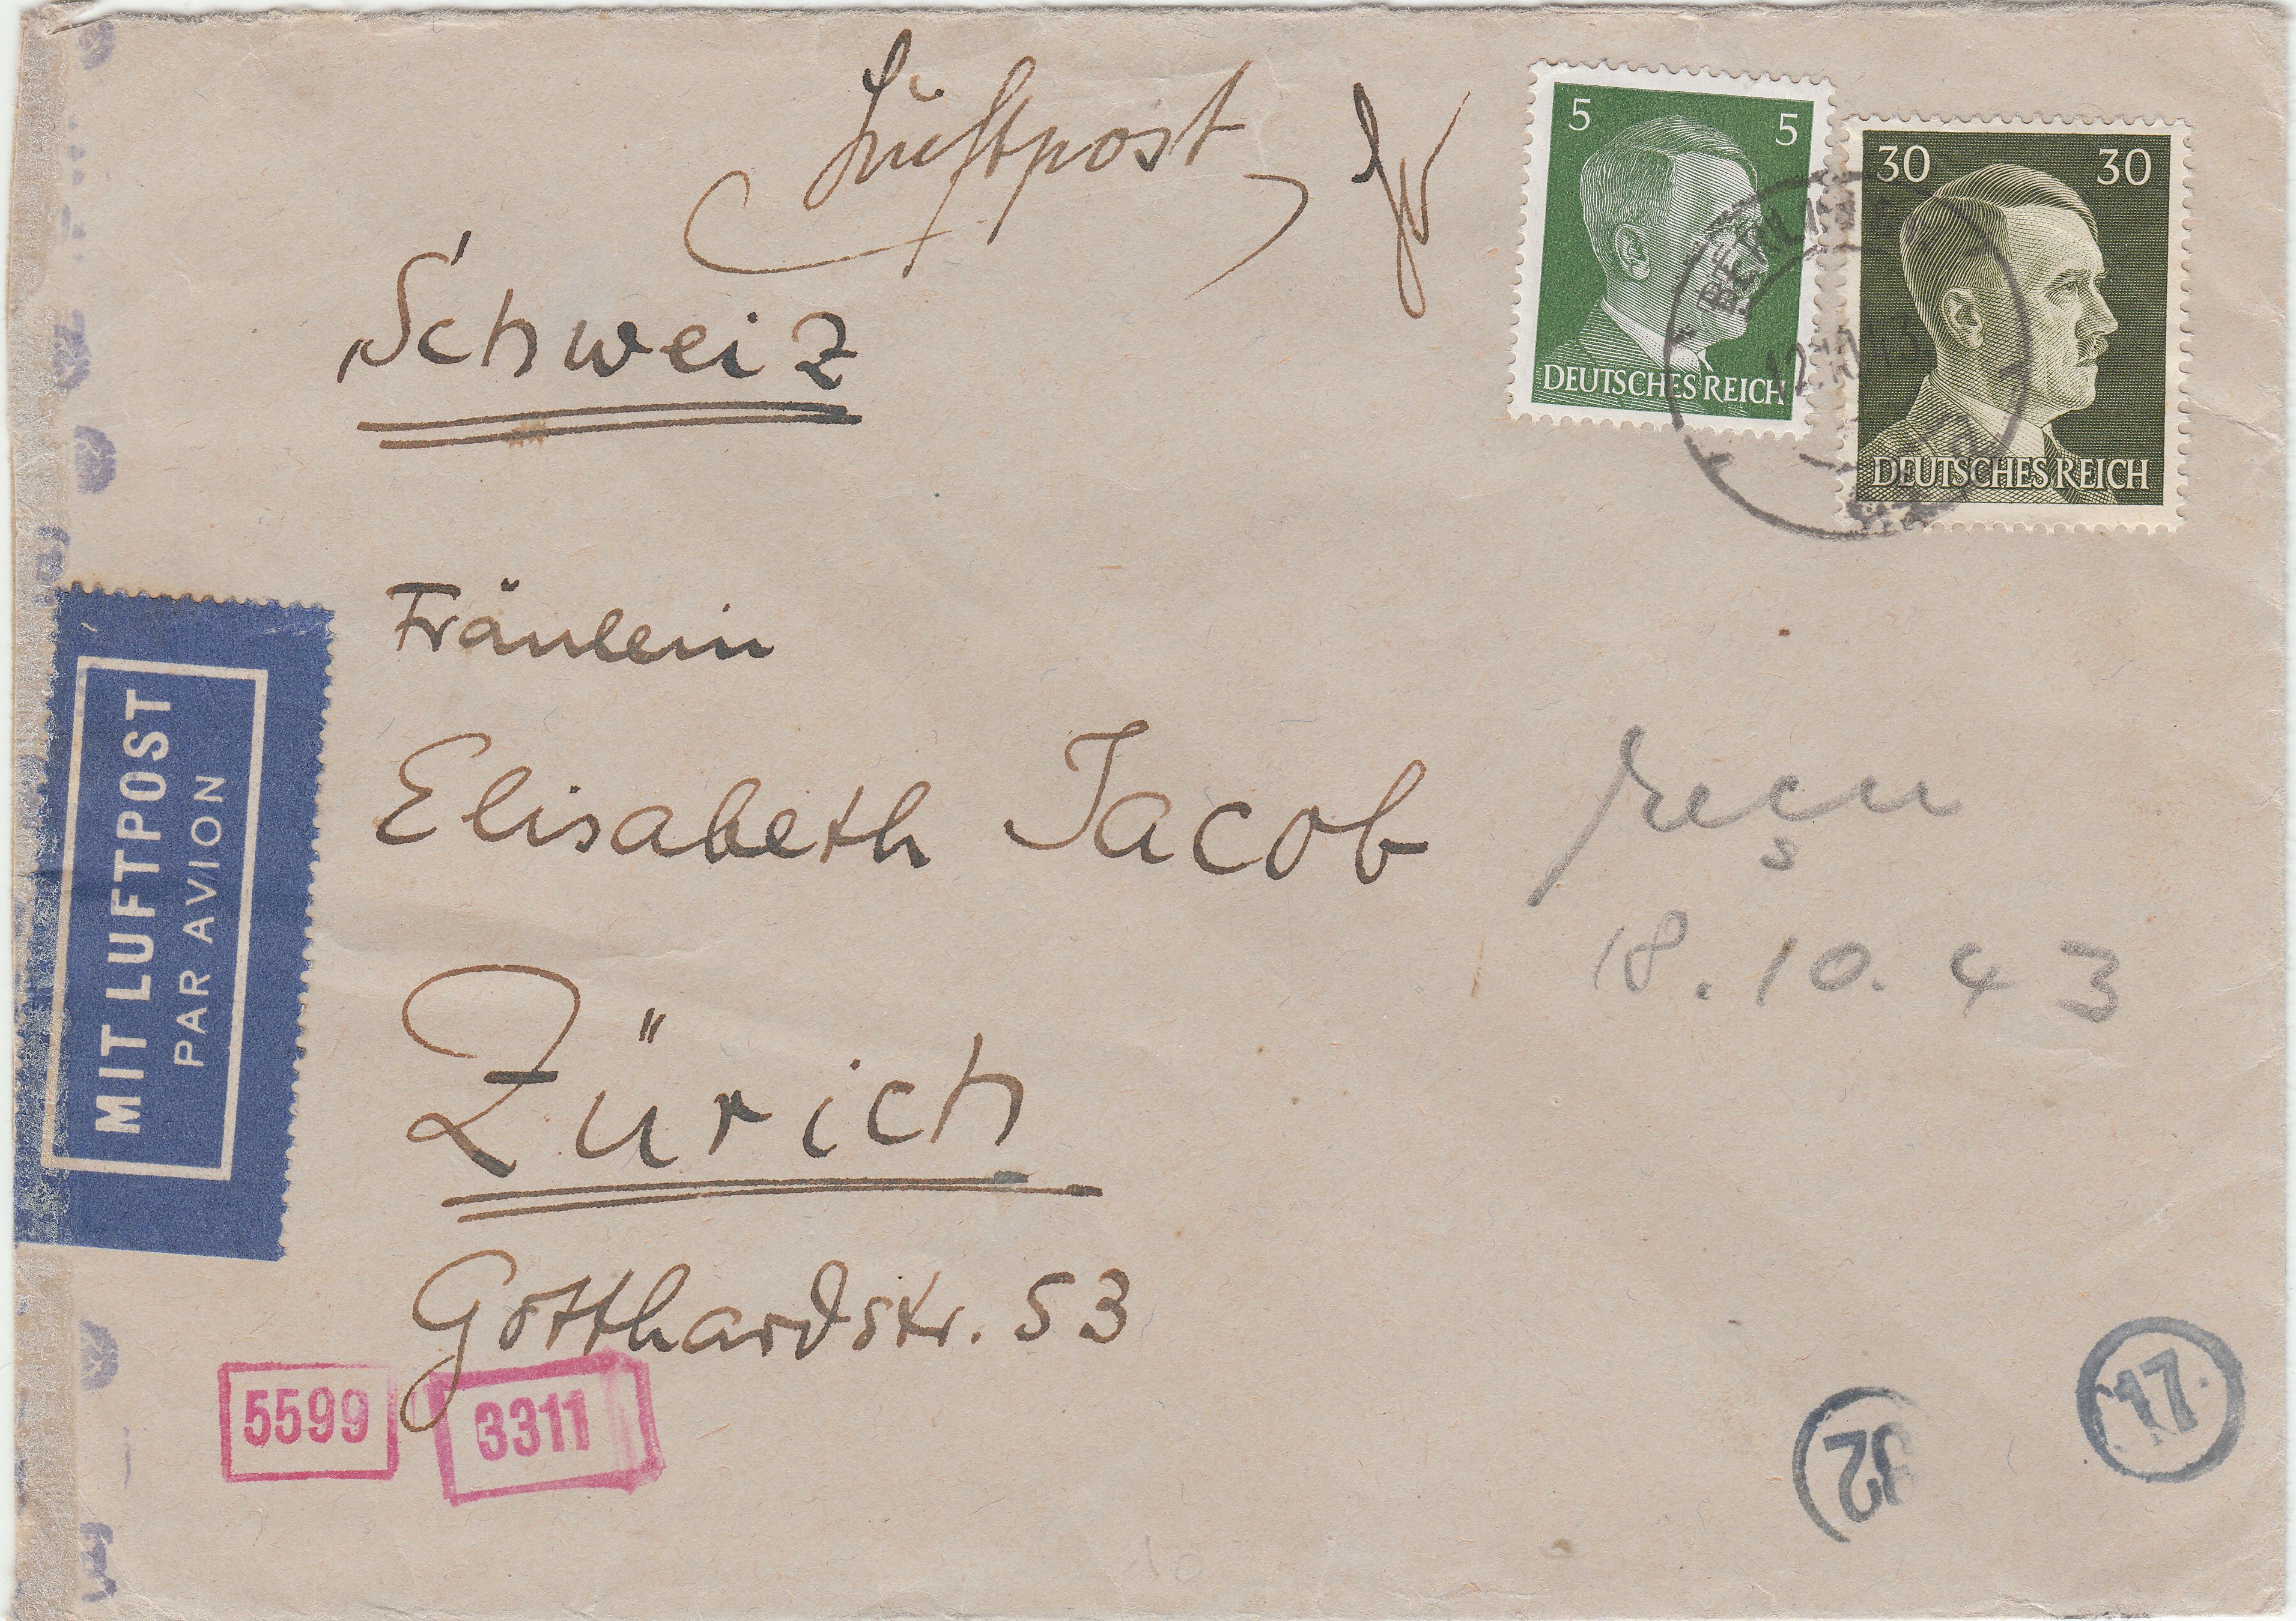 Luftpost
Schweiz
5 5
DEUTSCHES REICH
30 30
DEUTSCHES REICH
BERLIN
Fräulein
Elisabeth Jacob
18.10.43
Zürich
Gotthardstr. 53
MIT LUFTPOST
PAR AVION
5599
3311
32
17